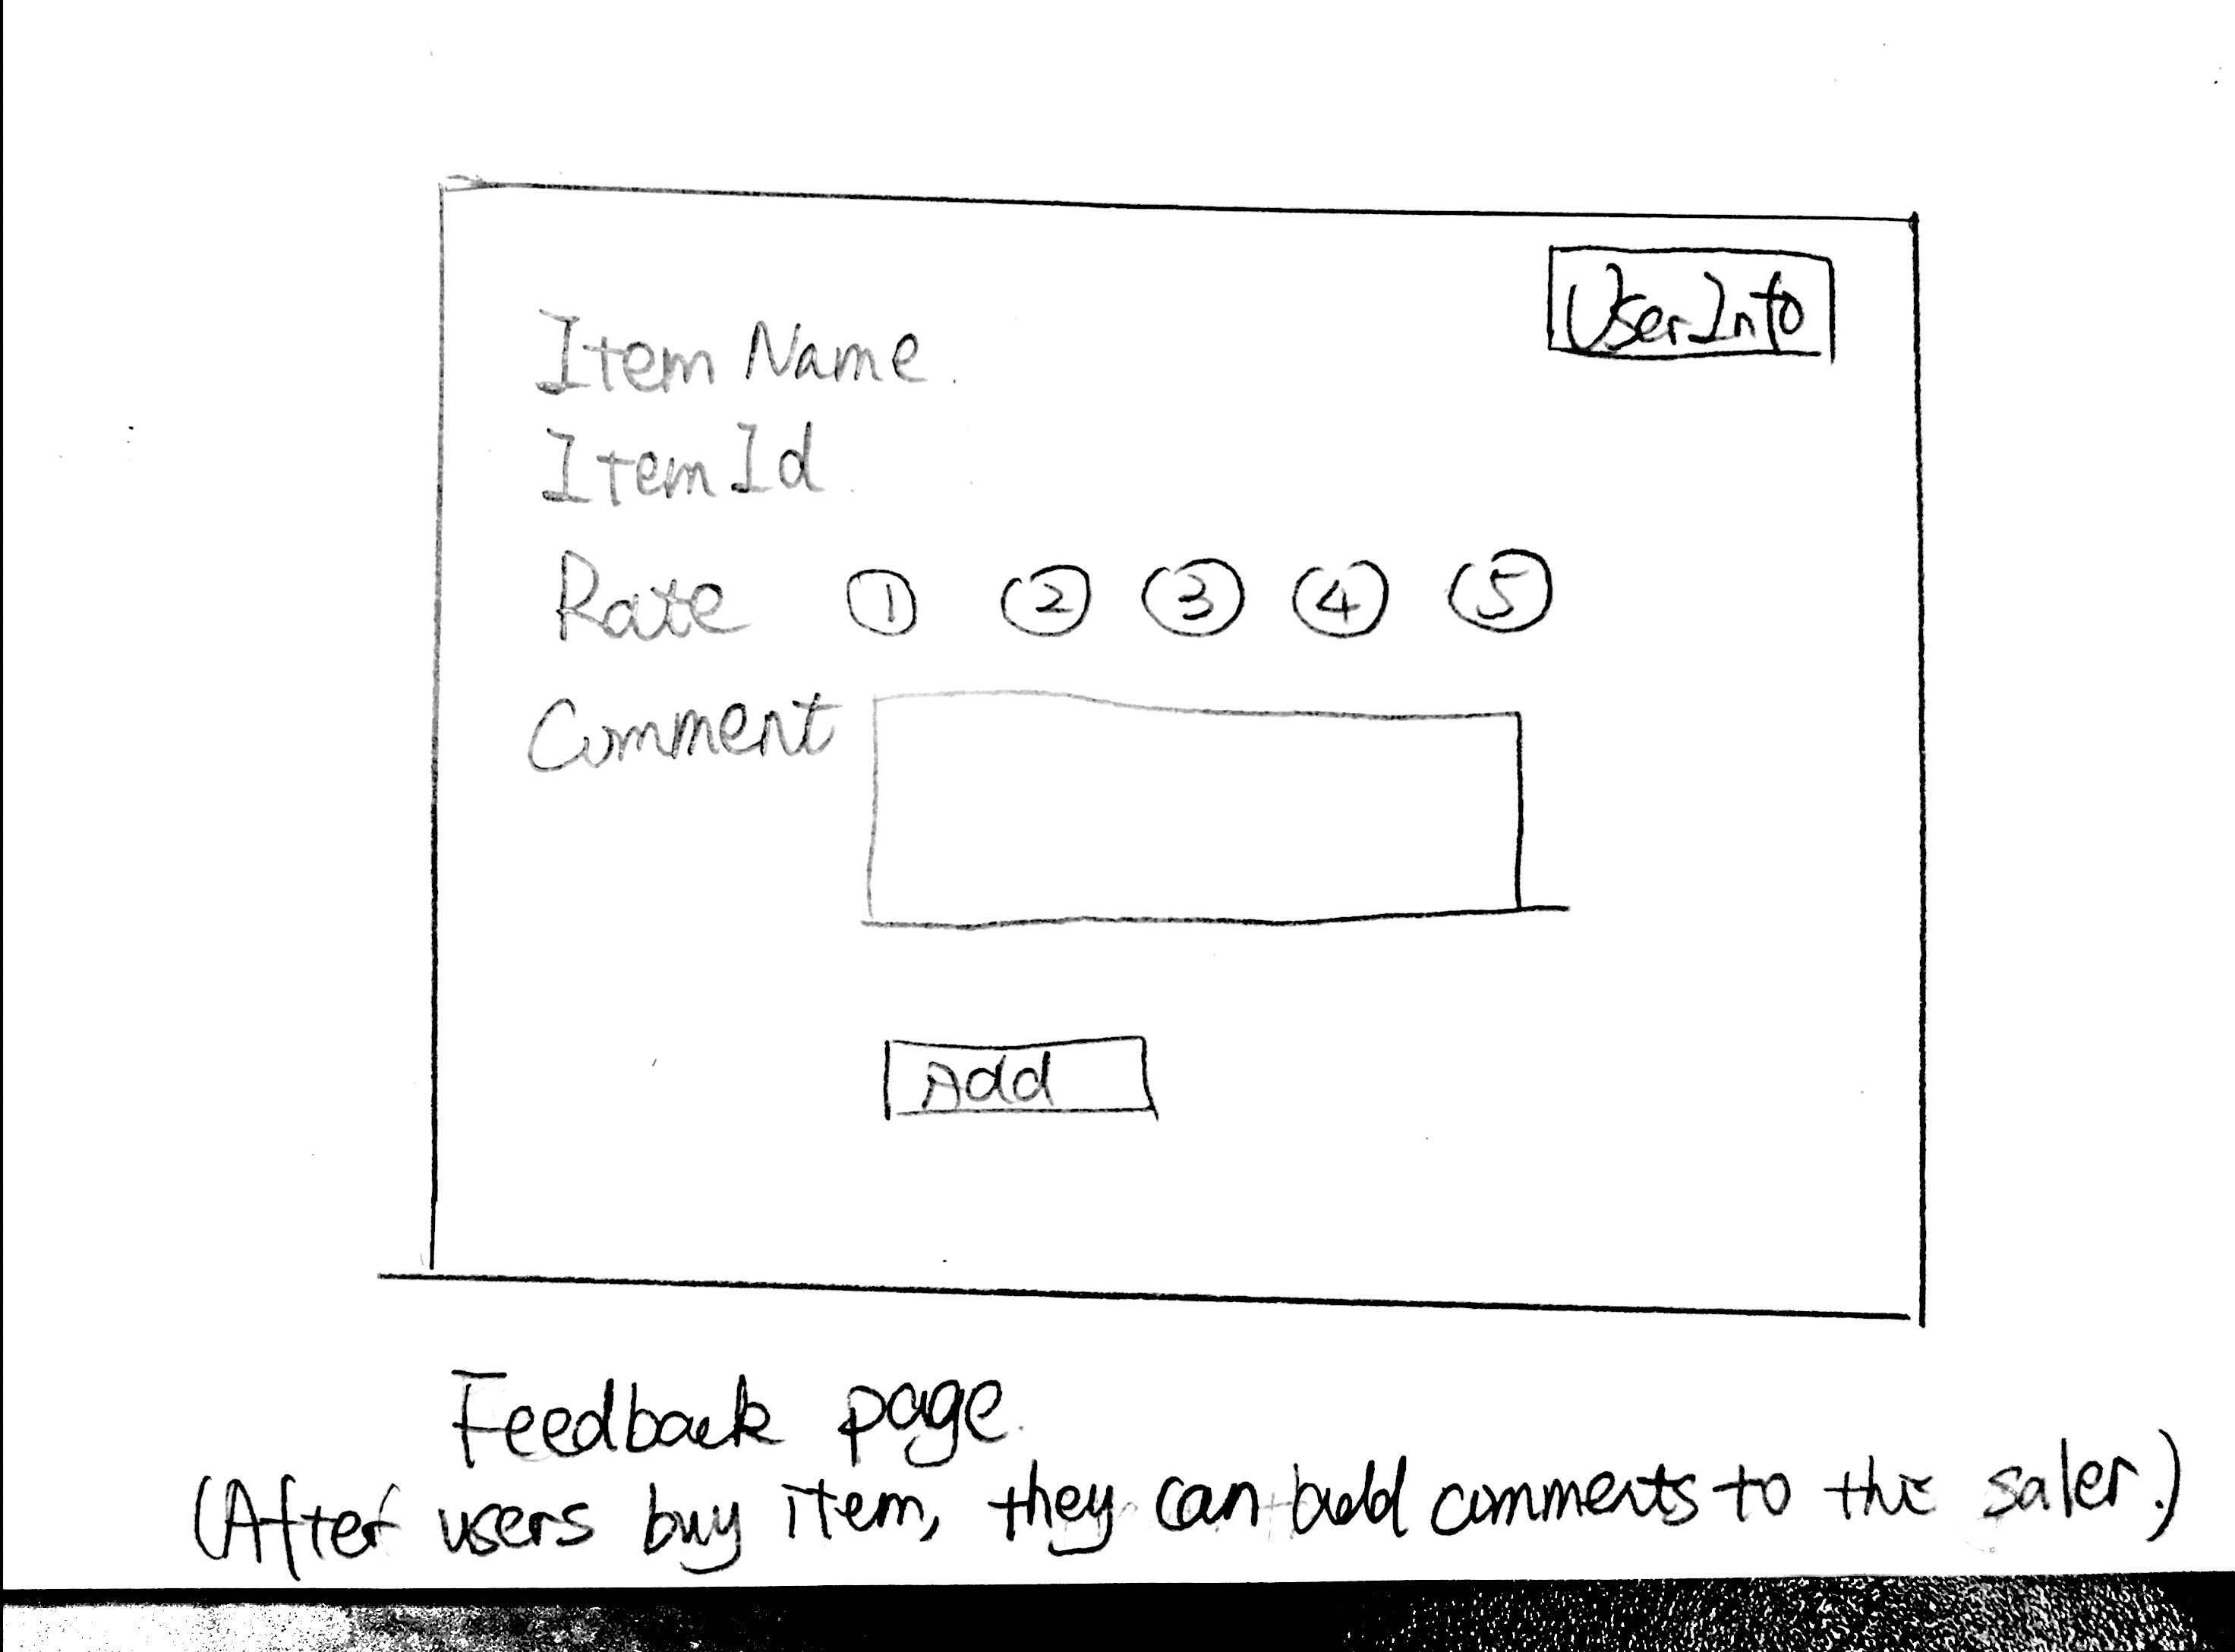 UserInfo
Item Name
Item Id
Rate 1 2 3 4 5
Comment
Add
Feedback page.
(After users buy item, they can add comments to the saler.)